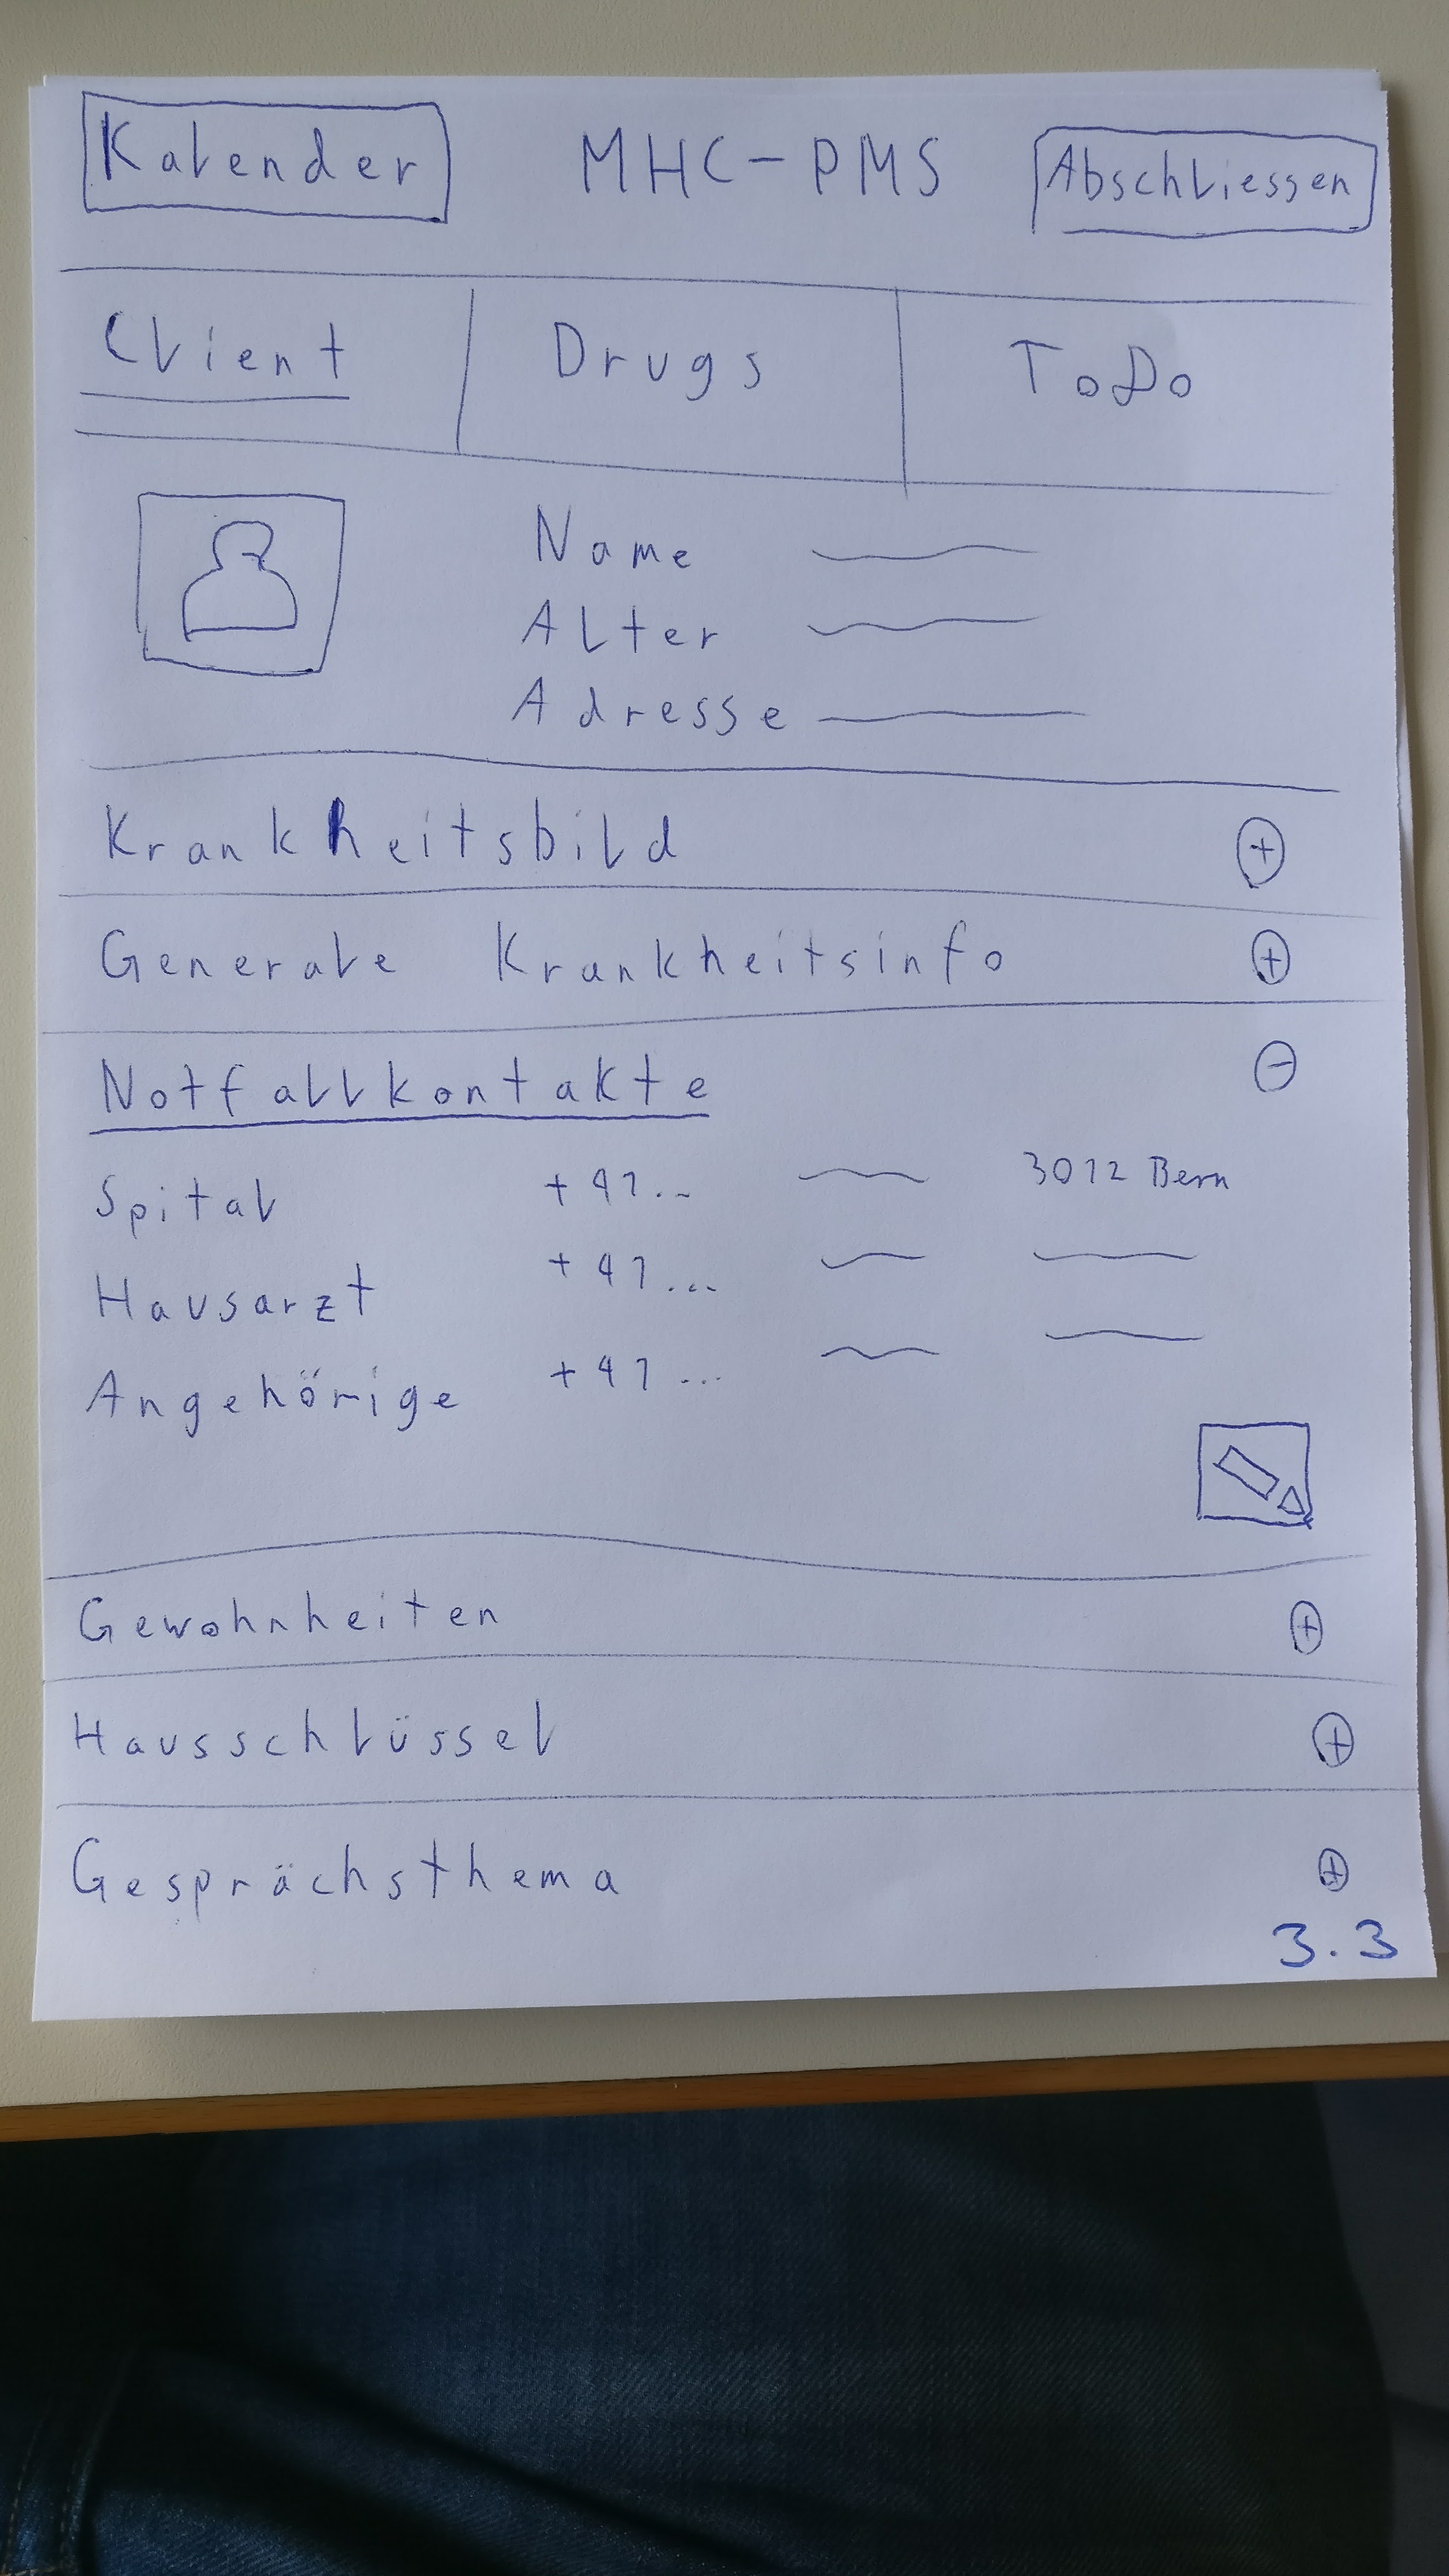 Kalender MHC-PMS Abschliessen
Client Drugs ToDo
Name
Alter
Adresse
Krankheitsbild +
Generale Krankheitsinfo +
Notfallkontakte -
Spital +41... 3012 Bern
Hausarzt +41...
Angehörige +41...
Gewohnheiten +
Hausschlüssel +
Gesprächsthema +
3.3